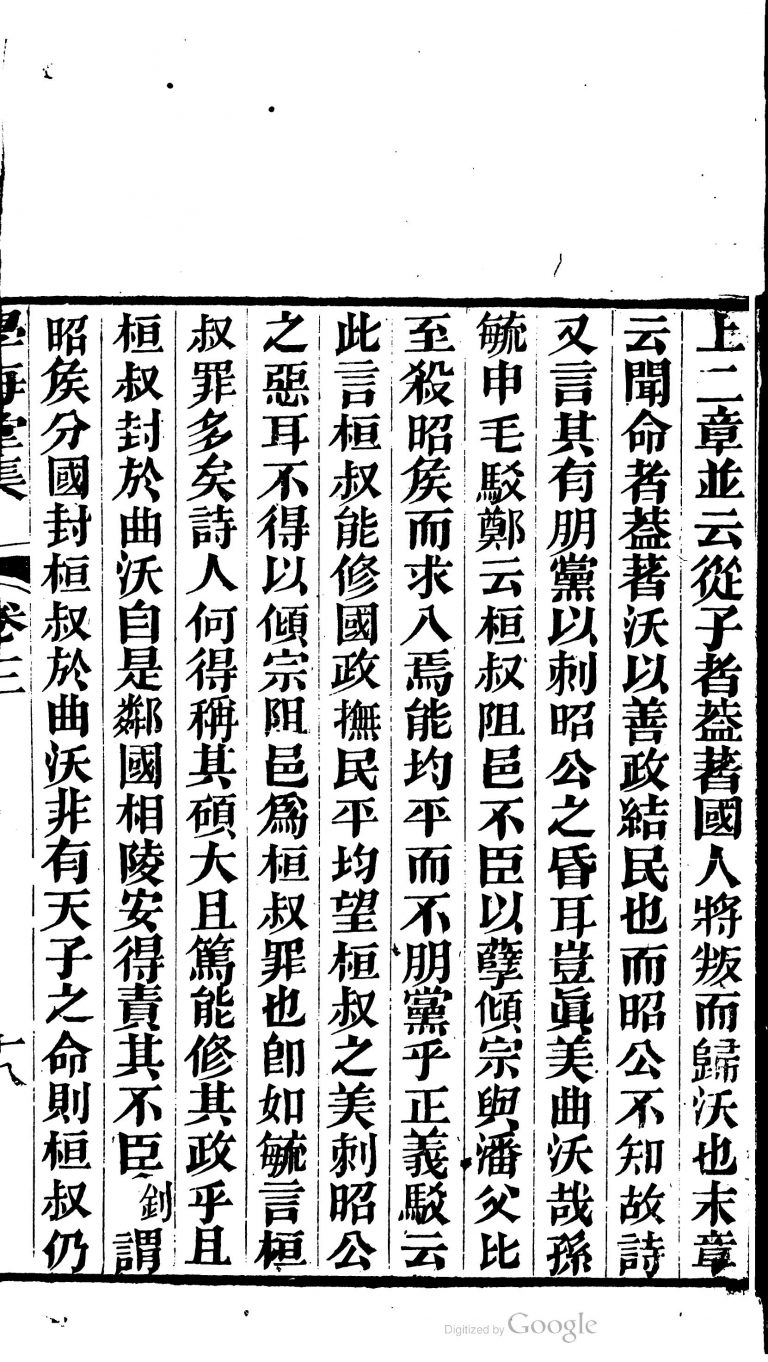 上二章並云從子者葢著國人將叛而歸沃也末章
云聞命者葢著沃以善政結民也而昭公不知故詩
又言其有朋黨以刺昭公之昏耳豈眞美曲沃哉孫
毓申毛駁鄭云桓叔阻邑不臣以孽傾宗與潘父比
至殺昭侯而求入焉能均平而不朋黨乎正義駁云
此言桓叔能修國政撫民平均望桓叔之美刺昭公
之惡耳不得以傾宗阻邑爲桓叔罪也卽如毓言桓
叔罪多矣詩人何得稱其碩大且篤能修其政乎且
桓叔封於曲沃自是鄰國相陵安得責其不臣釗謂
昭侯分國封桓叔於曲沃非有天子之命則桓叔仍
學海堂集
卷三
十八
Digitized by Google